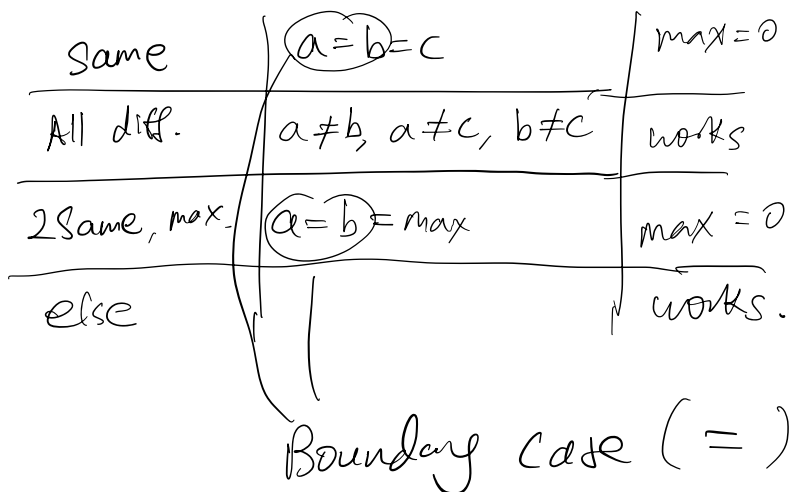 same a = b = c max = 0
All diff. a ≠ b, a ≠ c, b ≠ c works
2 Same, max. a = b = max max = 0
else works.
Boundary case ( = )